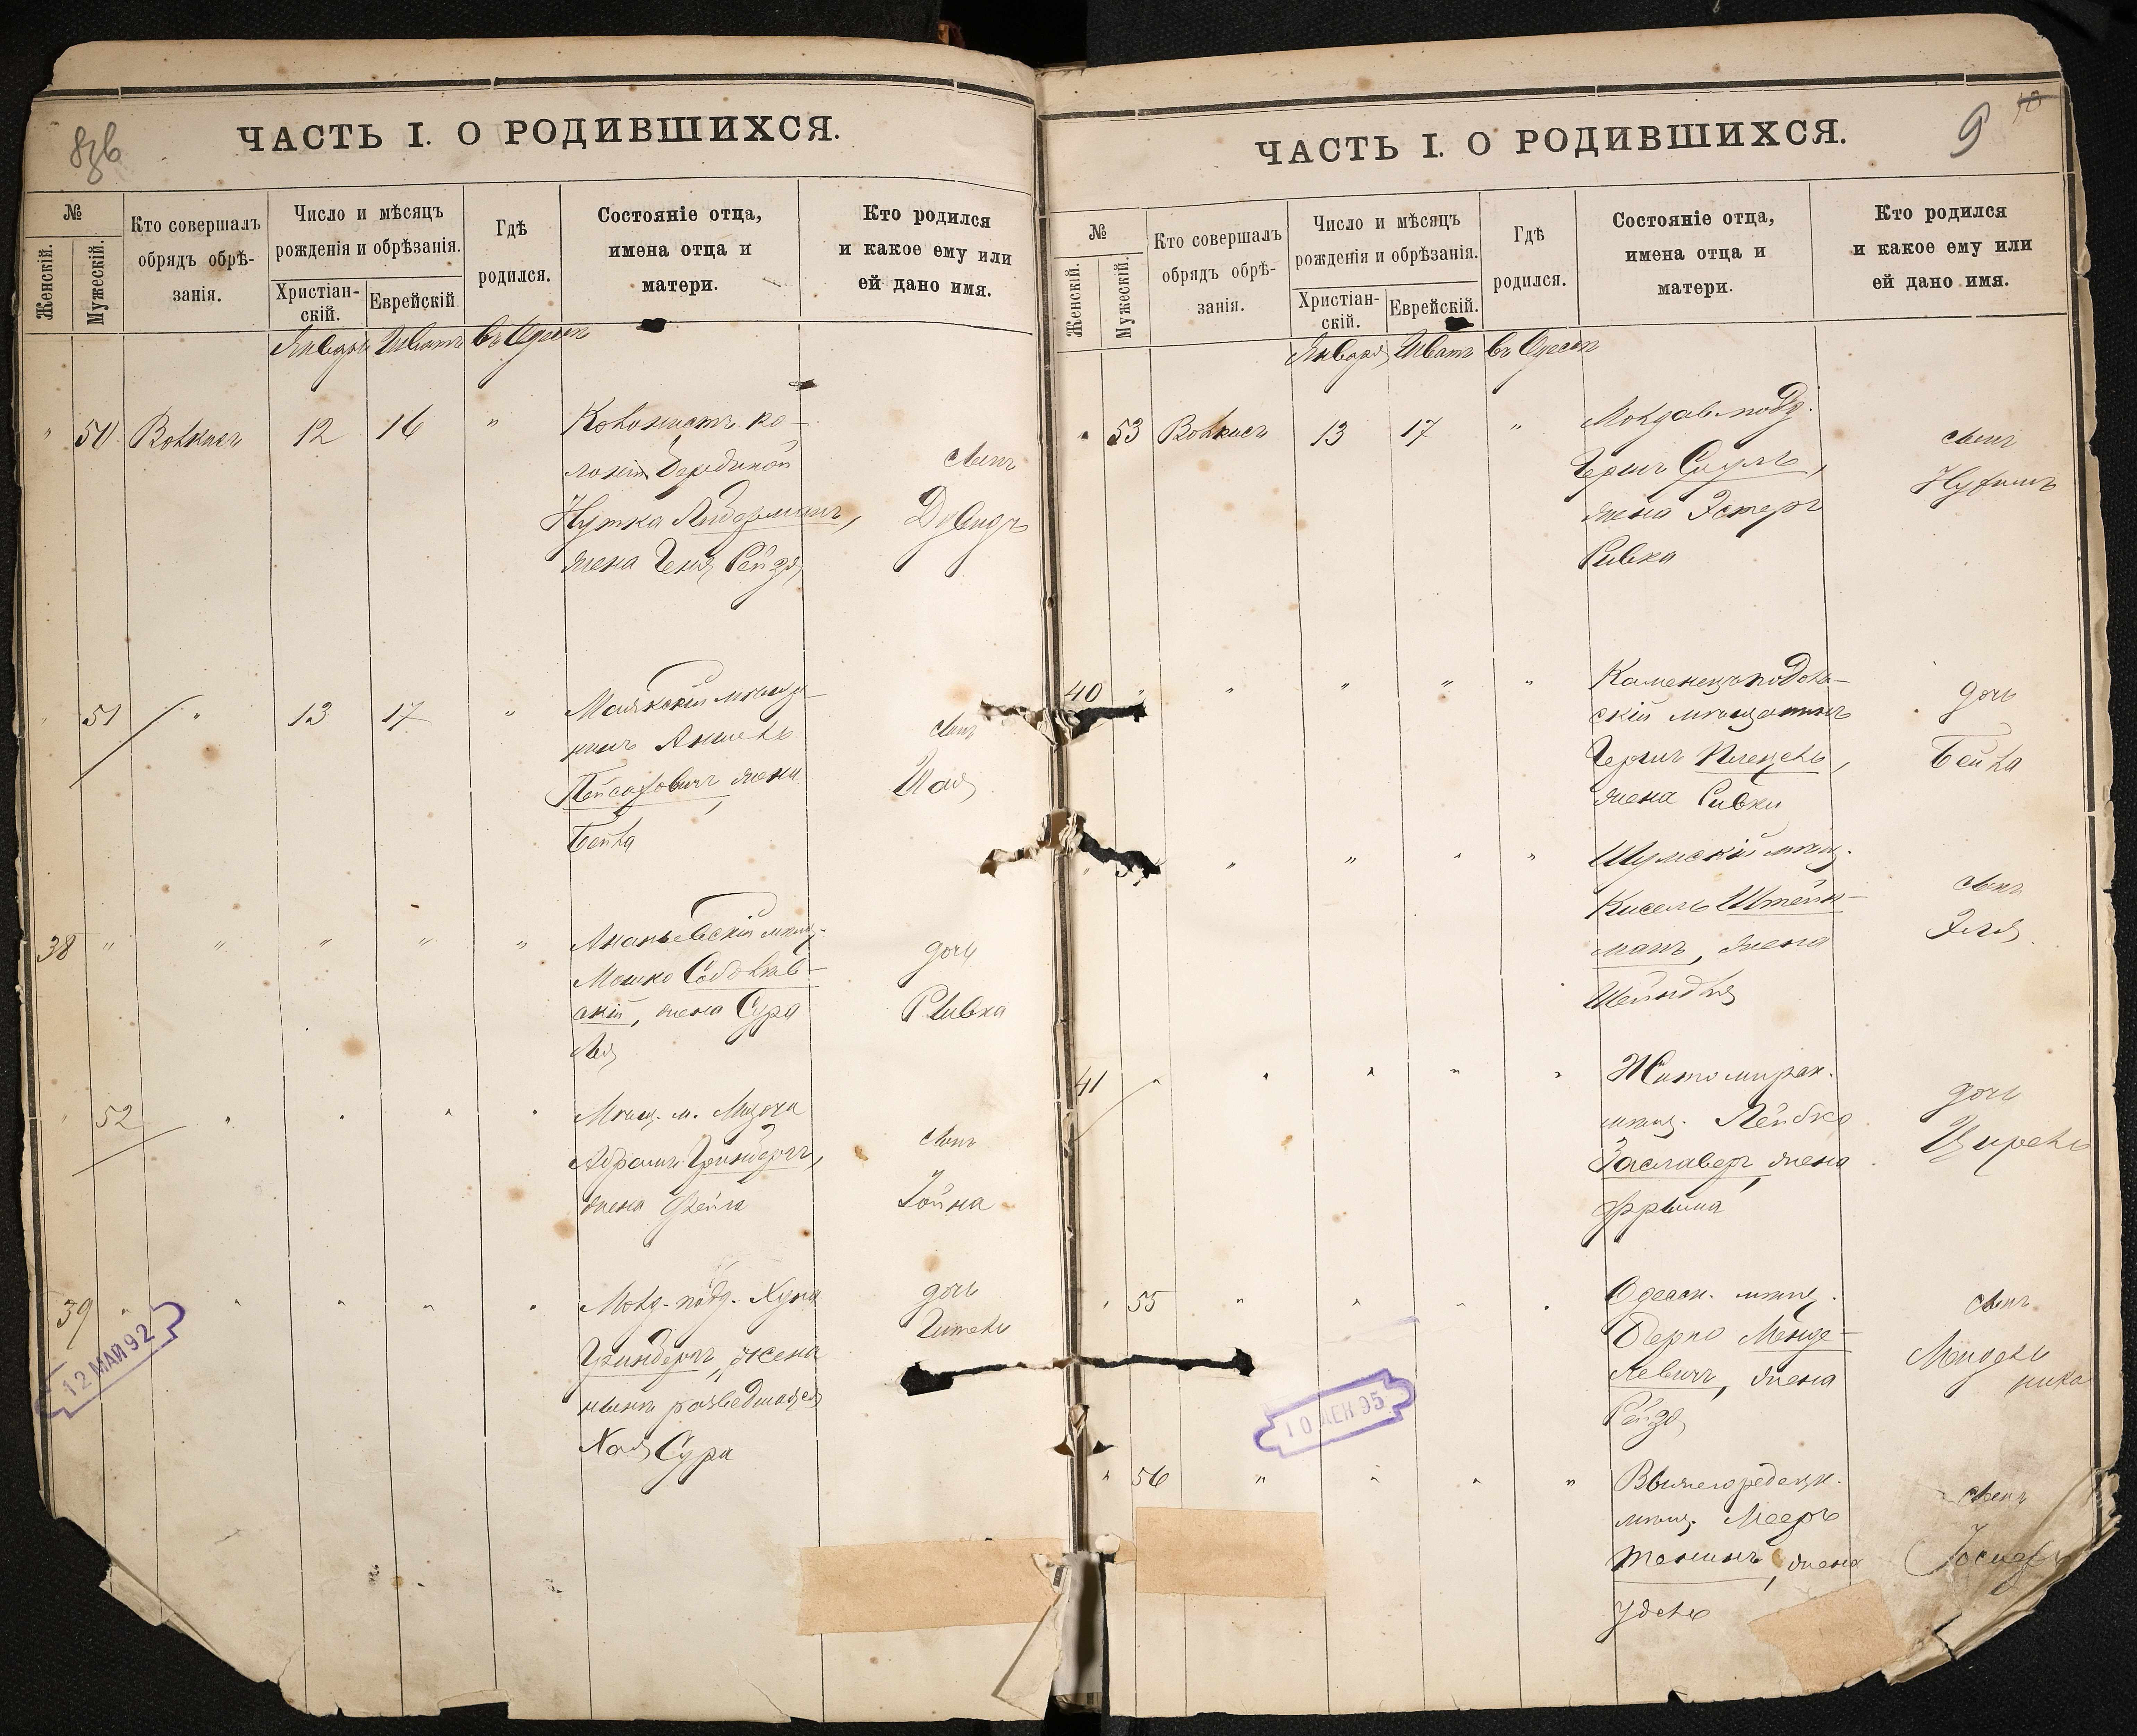 ЧАСТЬ I. О РОДИВШИХСЯ.
№
Женскій.
Мужескій.
Кто совершалъ
обрядъ обрѣ-
занія.
Число и мѣсяцъ
рожденія и обрѣзанія.
Христіан-
скій.
Еврейскій.
Гдѣ
родился.
Состояніе отца,
имена отца и
матери.
Кто родился
и какое ему или
ей дано имя.
Январь Шватъ въ Одессѣ
" 50 Волкисъ 12 16 "
Колонистъ ко-
лоніи
Нутка Лидерманъ,
жена Геня Рейзя
сынъ
Довидъ
" 51 " 13 17 "
Маякскій мѣща-
нинъ Аншель
Пейсаховичъ, жена
Бейла
сынъ
Шая
38 " " " " "
Ананьевскій мѣщ.
Мошко Соболев-
скій, жена Сура
Лея
дочь
Ривка
" 52 " " " "
Мѣщ. м.
Абрамъ Гринбергъ,
жена Фейга
сынъ
Хойна
39 " " " " "
Молд. подд. Хуна
Гринбергъ, жена
нынѣ разведшаяся
Хая Сура
дочь
Гитель
12 МАЙ 92
ЧАСТЬ I. О РОДИВШИХСЯ.
9
10
№
Женскій.
Мужескій.
Кто совершалъ
обрядъ обрѣ-
занія.
Число и мѣсяцъ
рожденія и обрѣзанія.
Христіан-
скій.
Еврейскій.
Гдѣ
родился.
Состояніе отца,
имена отца и
матери.
Кто родился
и какое ему или
ей дано имя.
Январь Шватъ въ Одессѣ
" 53 Волкисъ 13 17 "
Молдав. подд.
Гершъ
жена Эстеръ
Ривка
сынъ
Нухимъ
40 " " " " "
Каменецъ подоль-
скій мѣщанинъ
Гершъ
жена Ривки
дочь
Бейла
" " " "
Шумскій мѣщ.
Кисель Штейн-
манъ, жена
Шейндля
сынъ
Эля
41 " " " " "
Житомирск.
мѣщ. Лейбко
Заславеръ, жена
Фрыма
дочь
Цирель
" 55 " " " "
Одесск. мѣщ.
Берко Менде-
левичъ, жена
Рейзя
сынъ
Мендель
10 ДЕК 95
" 56 " " " "
мѣщ. Мееръ
жена
Удель
сынъ
Іосифъ